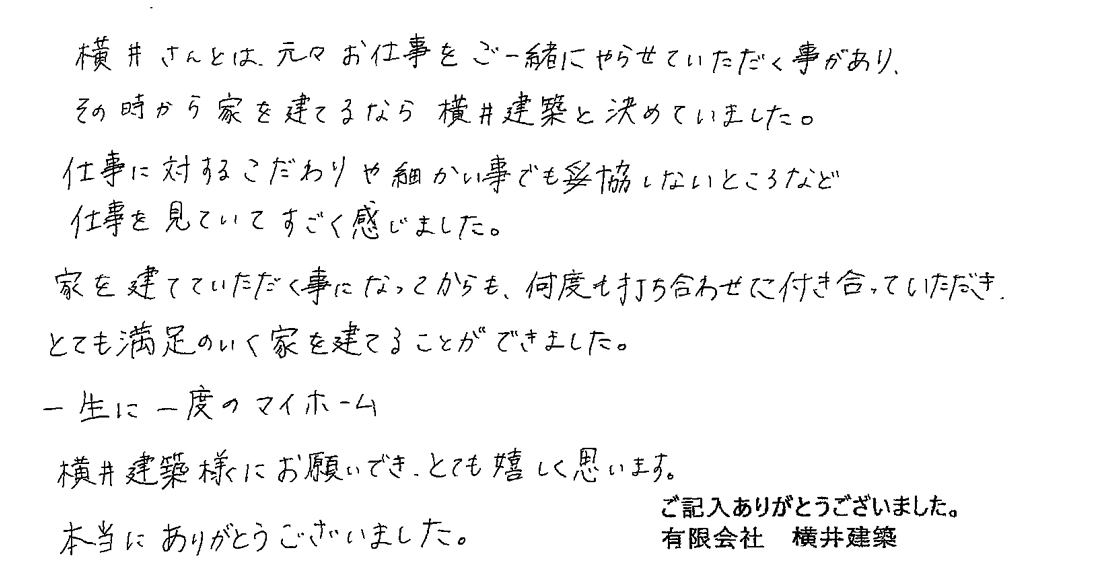 横井さんとは、元々お仕事をご一緒にやらせていただく事があり、
その時から家を建てるなら横井建築と決めていました。
仕事に対するこだわりや細かい事でも妥協しないところなど
仕事を見ていてすごく感じました。
家を建てていただく事になってからも、何度も打ち合わせに付き合っていただき、
とても満足のいく家を建てることができました。
一生に一度のマイホーム
横井建築様にお願いでき、とても嬉しく思います。
本当にありがとうございました。
ご記入ありがとうございました。
有限会社　横井建築